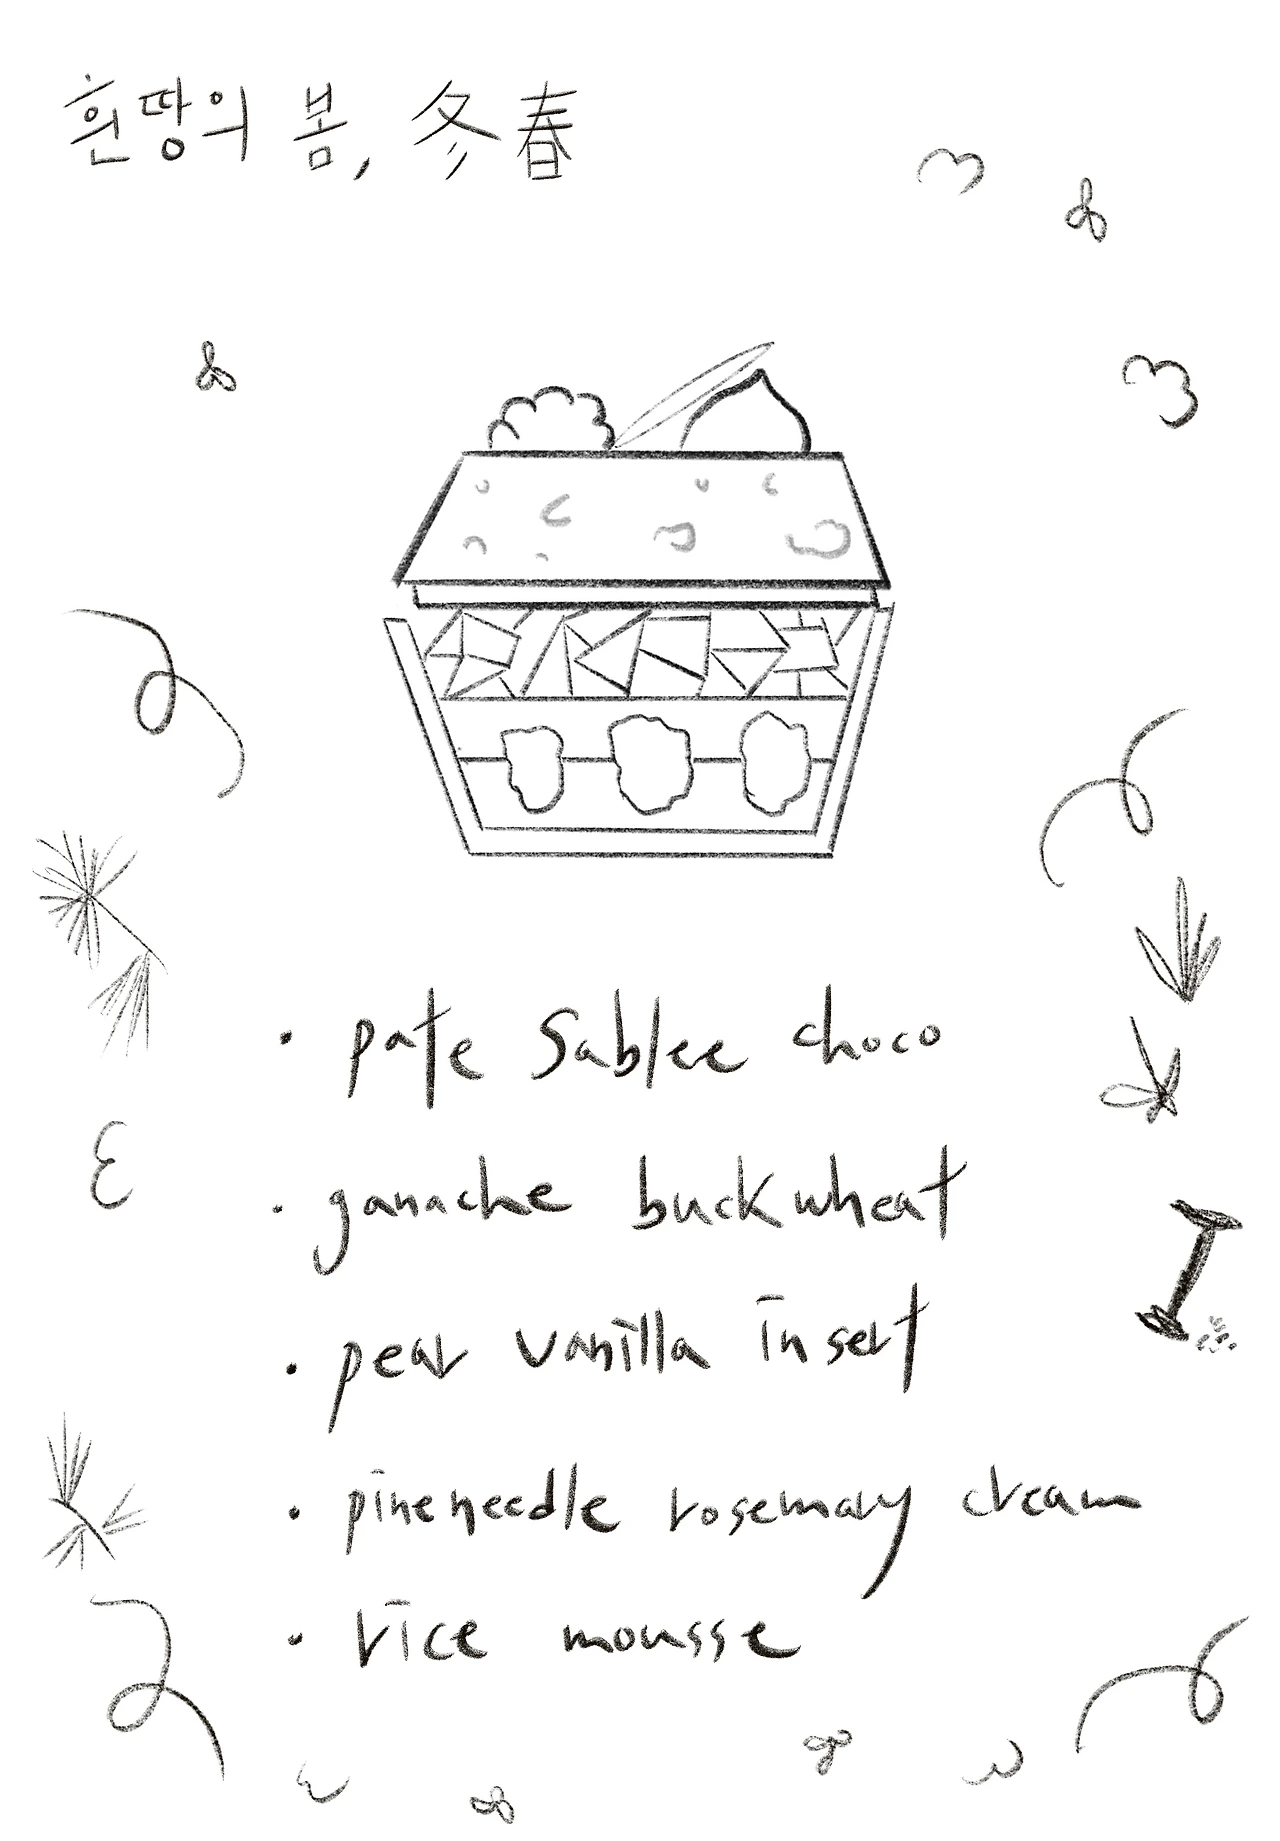 흰땅의 봄, 冬春
· pate Sablee choco
· ganache buckwheat
· pear vanilla insert
· pineneedle rosemary cream
· rice mousse